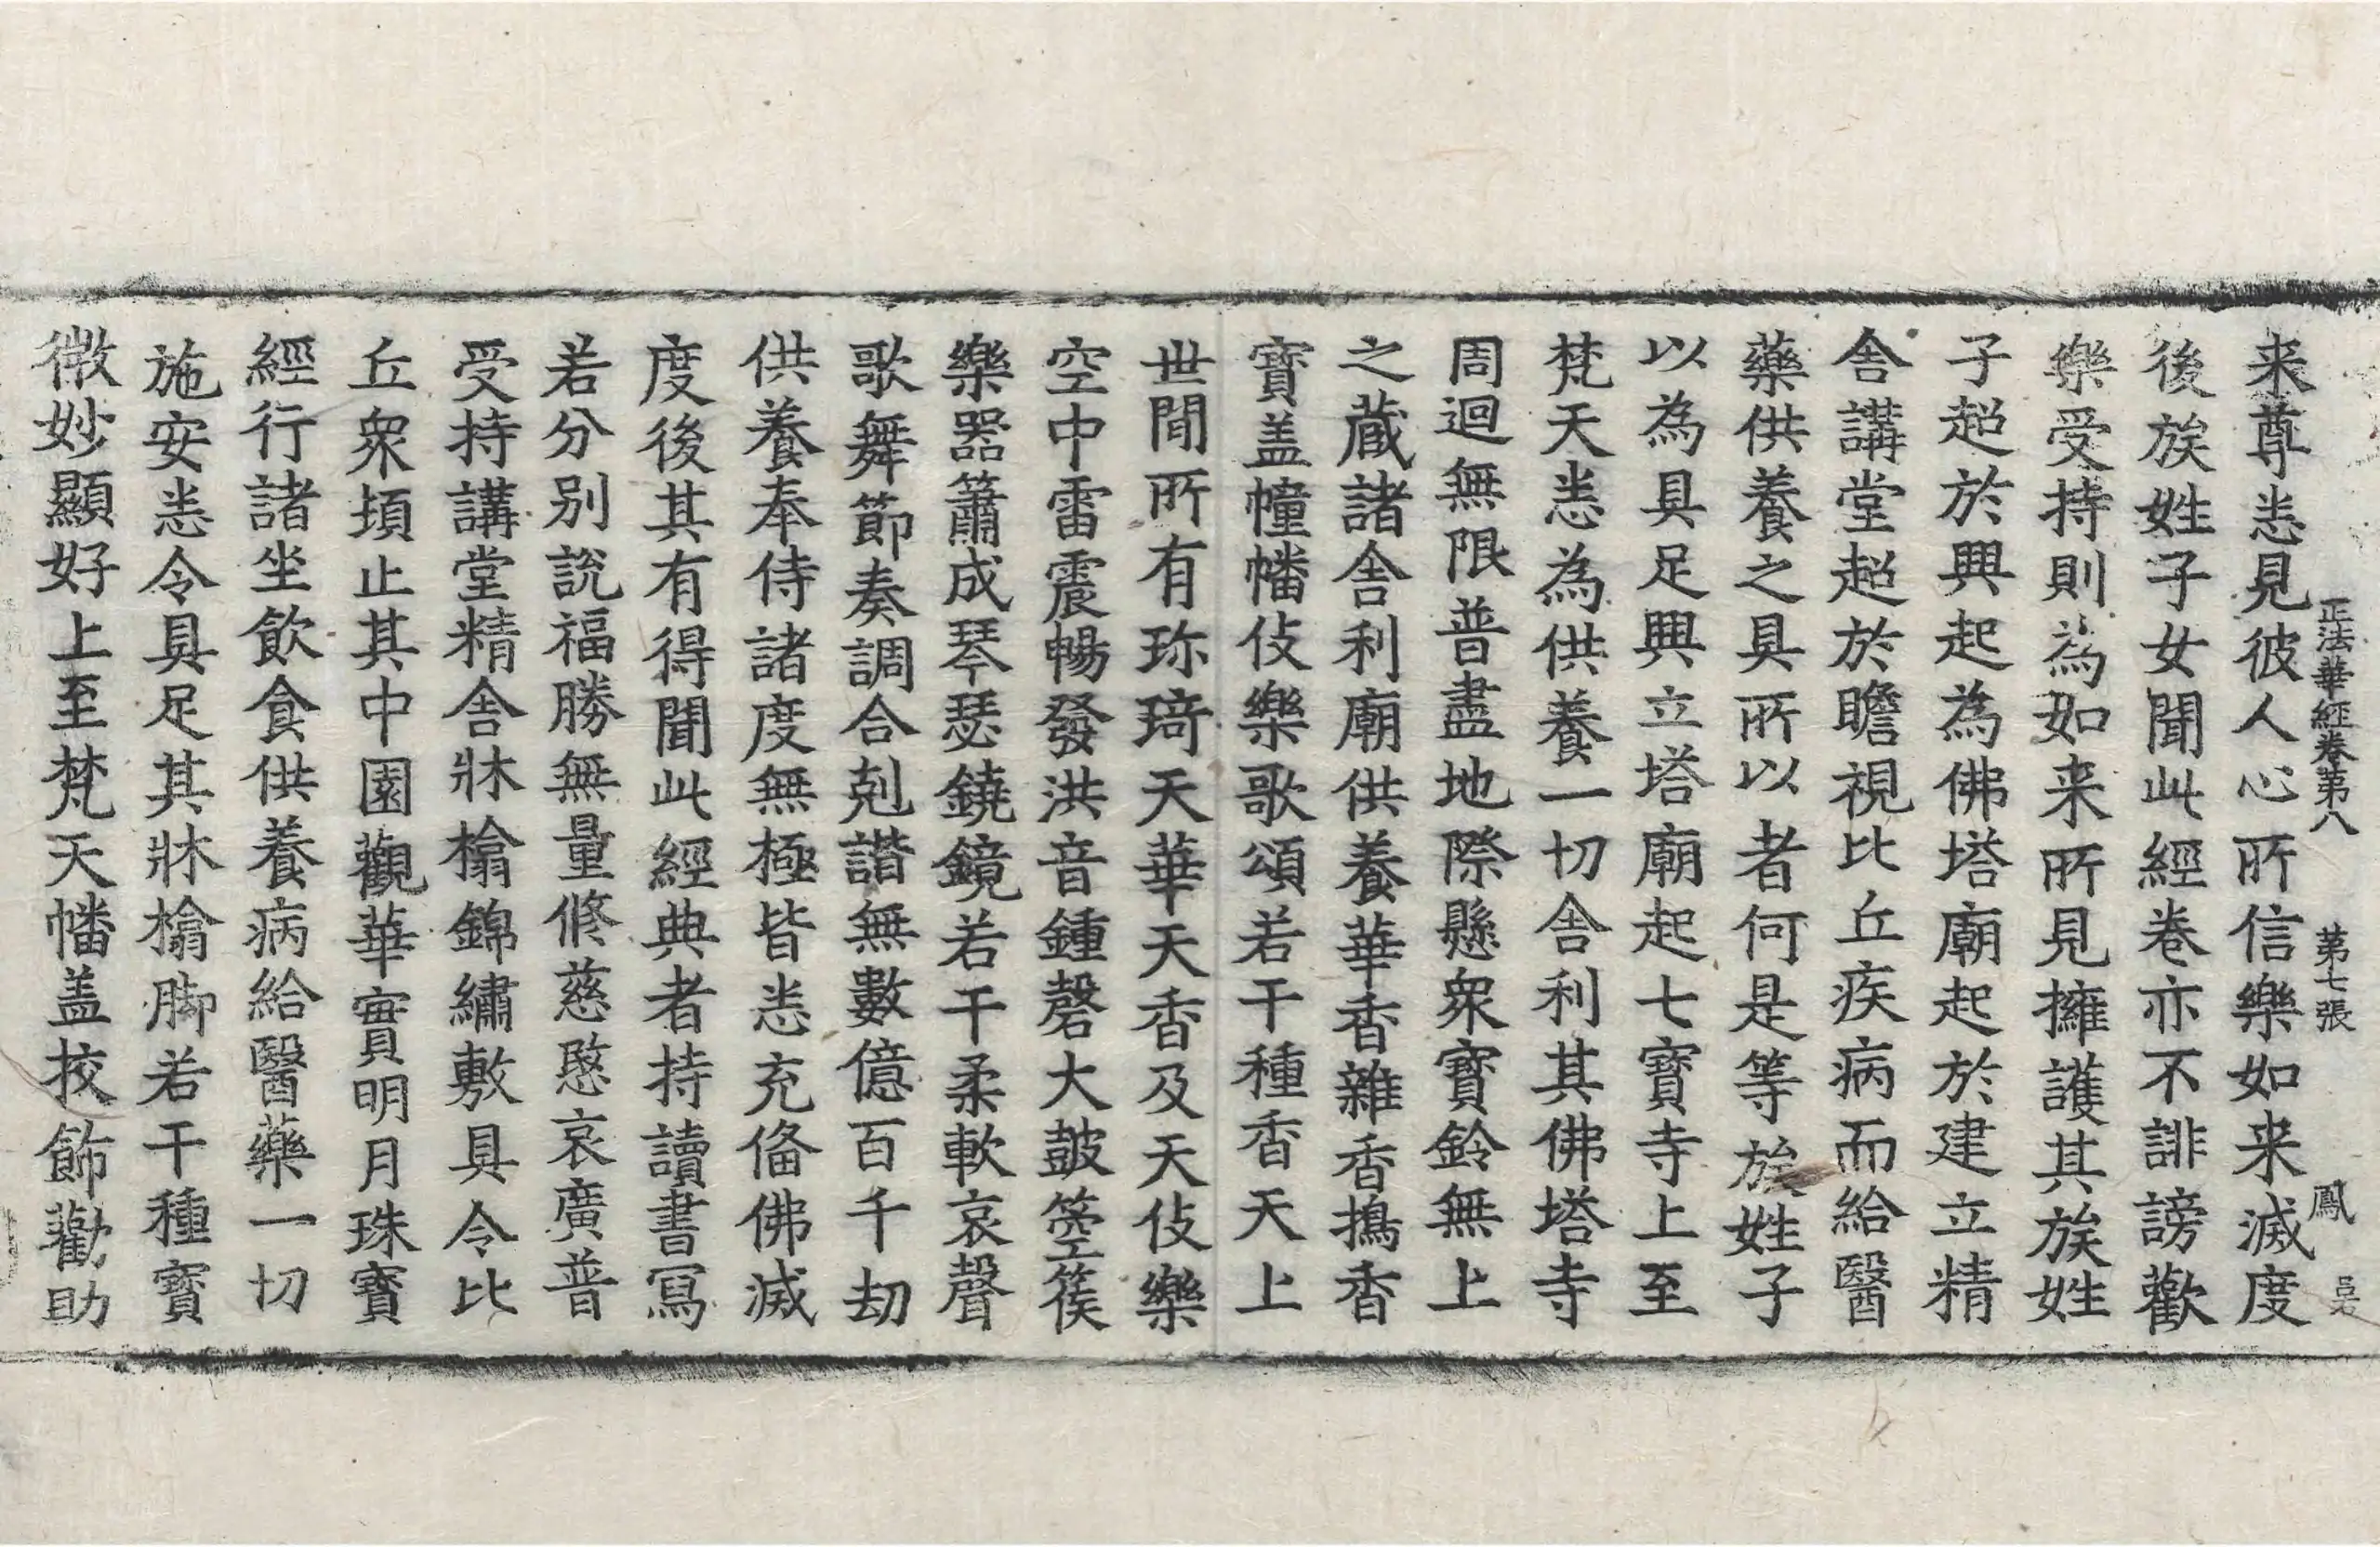 正法華經卷第八 第七張 鳳
来尊悉見彼人心所信樂如来滅度
後族姓子女聞此經卷亦不誹謗歡
樂受持則為如来所見擁護其族姓
子超於興起為佛塔廟起於建立精
舎講堂超於瞻視比丘疾病而給醫
藥供養之具所以者何是等族姓子
以為具足興立塔廟起七寳寺上至
梵天悉為供養一切舎利其佛塔寺
周迴無限普盡地際懸衆寳鈴無上
之蔵諸舎利廟供養華香雜香擣香
寳盖幢幡伎樂歌頌若干種香天上
世間所有珎琦天華天香及天伎樂
空中雷震暢發洪音鍾磬大鼓箜篌
樂器簫成琴瑟鐃鏡若干柔軟哀聲
歌舞節奏調合剋諧無數億百千劫
供養奉侍諸度無極皆悉充俻佛滅
度後其有得聞此經典者持讀書冩
若分别說福勝無量修慈愍哀廣普
受持講堂精舎牀榻錦繡敷具令比
丘衆頓止其中園觀華實明月珠寳
經行諸坐飲食供養病給醫藥一切
施安悉令具足其牀榻脚若干種寳
微妙顯好上至梵天幡盖挍飾勸助